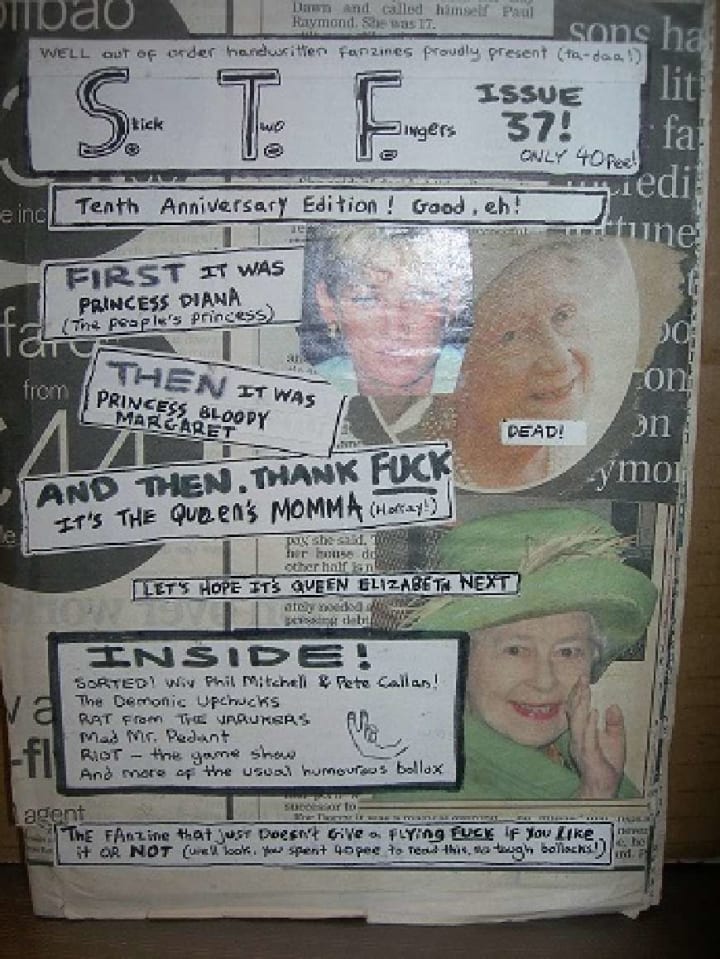 lbao
Dawn and called himself Paul
Raymond. She was 17.
sons ha
lit
fa
redi
tune
WELL out of order handwritten fanzines proudly present (ta-daa!)
S.tick T.wo F.ingers
ISSUE
37!
ONLY 40pee!
e inc
Tenth Anniversary Edition! Good, eh!
FIRST IT WAS
PRINCESS DIANA
(The people's princess)
from
THEN IT WAS
PRINCESS BLOODY
MARGARET
DEAD!
on
ymo
AND THEN, THANK FUCK
IT'S THE QUEEN'S MOMMA (Hooray!)
pay, she said.
her house do
other half is n
LET'S HOPE IT'S QUEEN ELIZABETH NEXT
ately needed
pressing debt
INSIDE!
SORTED! wiv Phil Mitchell & Pete Callan!
The Demonic Upchucks
RAT From THE VARUKERS
Mad Mr. Pedant
RIOT - the game show
And more of the usual humourous bollox
-fl
successor to
agent
THE FAnzine that just Doesn't Give a FLYING FUCK IF YOU LIKE
it OR NOT (well look, you spent 40pee to read this, so tough bollocks!)